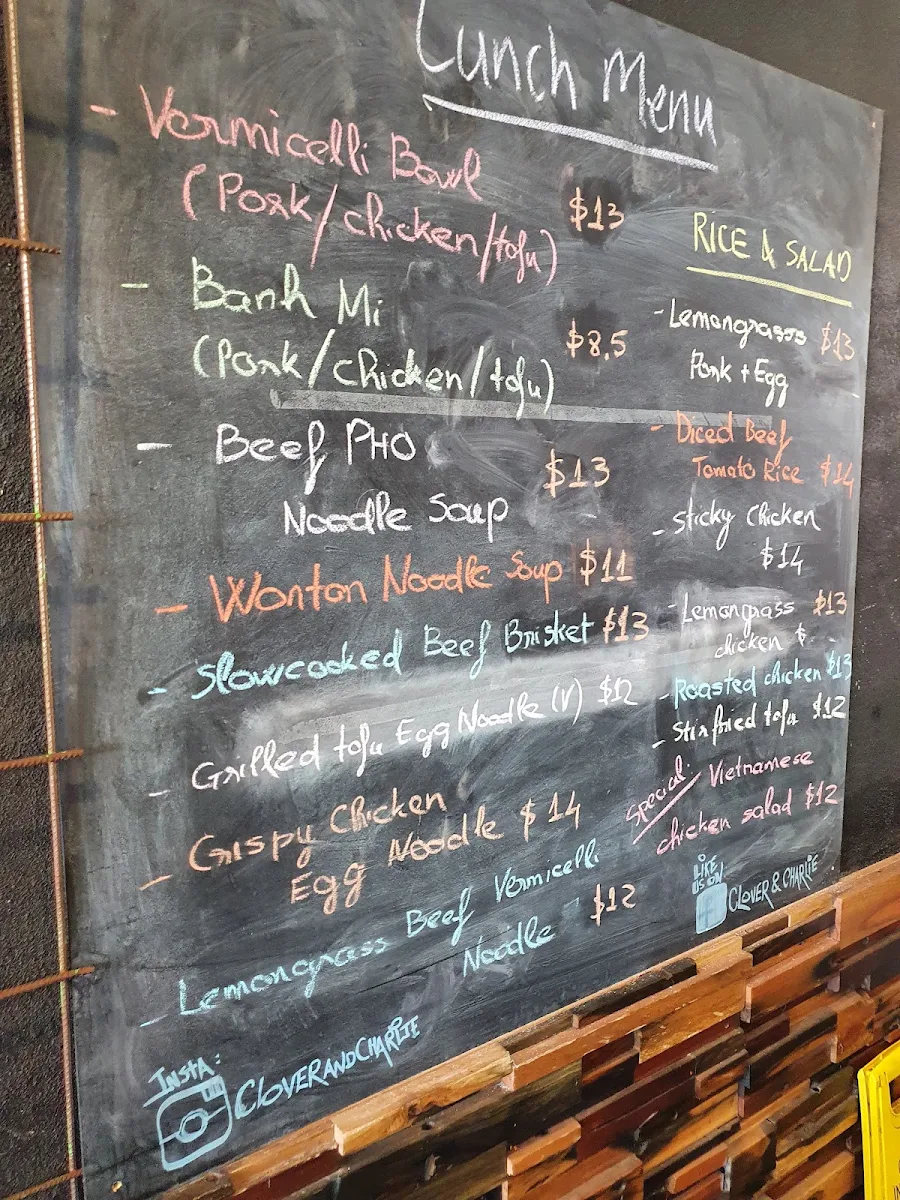 Lunch Menu
- Vermicelli Bowl
(Pork/chicken/tofu) $13
- Banh Mi
(Pork/chicken/tofu) $8.5
- Beef PHO
Noodle Soup $13
- Wonton Noodle Soup $11
- Slowcooked Beef Brisket $13
- Grilled tofu Egg Noodle (V) $12
- Crispy Chicken
Egg Noodle $14
- Lemongrass Beef Vermicelli
Noodle $12
INSTA:
CLOVERANDCHARLIE
RICE & SALAD
- Lemongrasss $13
Pork + Egg
- Diced Beef
Tomato Rice $14
- Sticky Chicken
$14
- Lemongrass $13
chicken $
- Roasted chicken $13
- Stirfried tofu $12
Special: Vietnamese
chicken salad $12
LIKE
US ON
CLOVER & CHARLIE